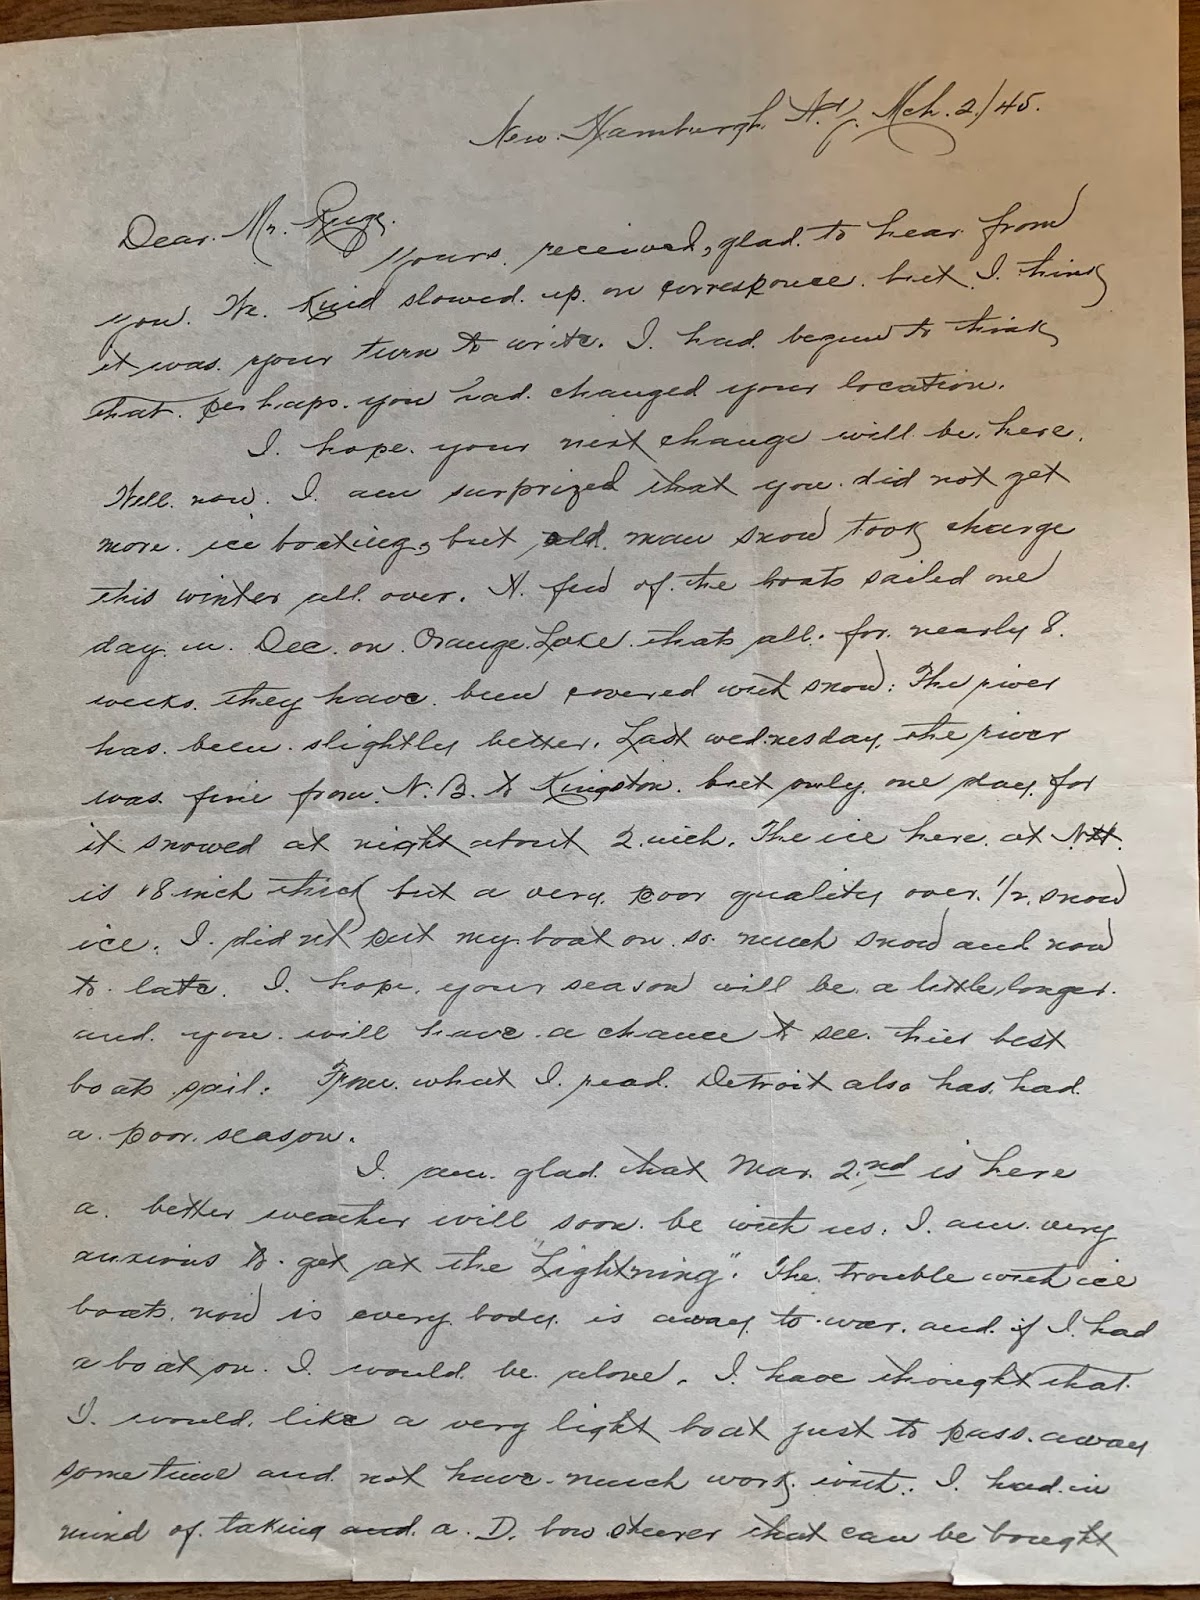 New Hamburgh N.Y. Mch. 2/45.
Dear Mr. Ruge.
Yours received, glad to hear from
you. We kind slowed up on corresponce but I think
it was your turn to write. I had begun to think
that perhaps you had changed your location.
I hope your next change will be here.
Well now I am surprized that you did not get
more ice boating, but old man snow took charge
this winter all over. A few of the boats sailed one
day in Dec. on Orange Lake thats all. for nearly 8
weeks they have been covered with snow. The river
has been slightly better. Last wednesday the river
was fine from N.B. to Kingston but only one day for
it snowed at night about 2 inch. The ice here at NH
is 18 inch thick but a very poor quality over 1/2 snow
ice. I did nt put my boat on so much snow and now
to late. I hope your season will be a little longer
and you will have a chance to see thier best
boats sail. From what I read Detroit also has had
a poor season.
I am glad that Mar. 2nd is here
a better weather will soon be with us. I am very
anxious to get at the "Lightning". The trouble with ice
boats now is every body is away to war and if I had
a boat on I would be alone. I have thought that
I would like a very light boat just to pass away
some time and not have much work wit. I had in
mind of taking and a D. bow steerer that can be bought